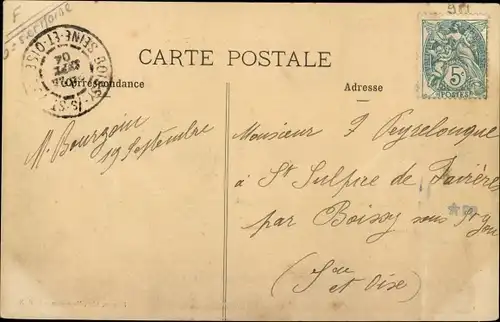 F
CARTE POSTALE
Correspondance
Adresse
5c
POSTES
SEINE-ET-OISE
SEPT
04
M. Bourgoin
19 Septembre
Monsieur F Peyrelongue
à St Sulpice de Favières
par Boissy sous St Yon
(S. et Oise)